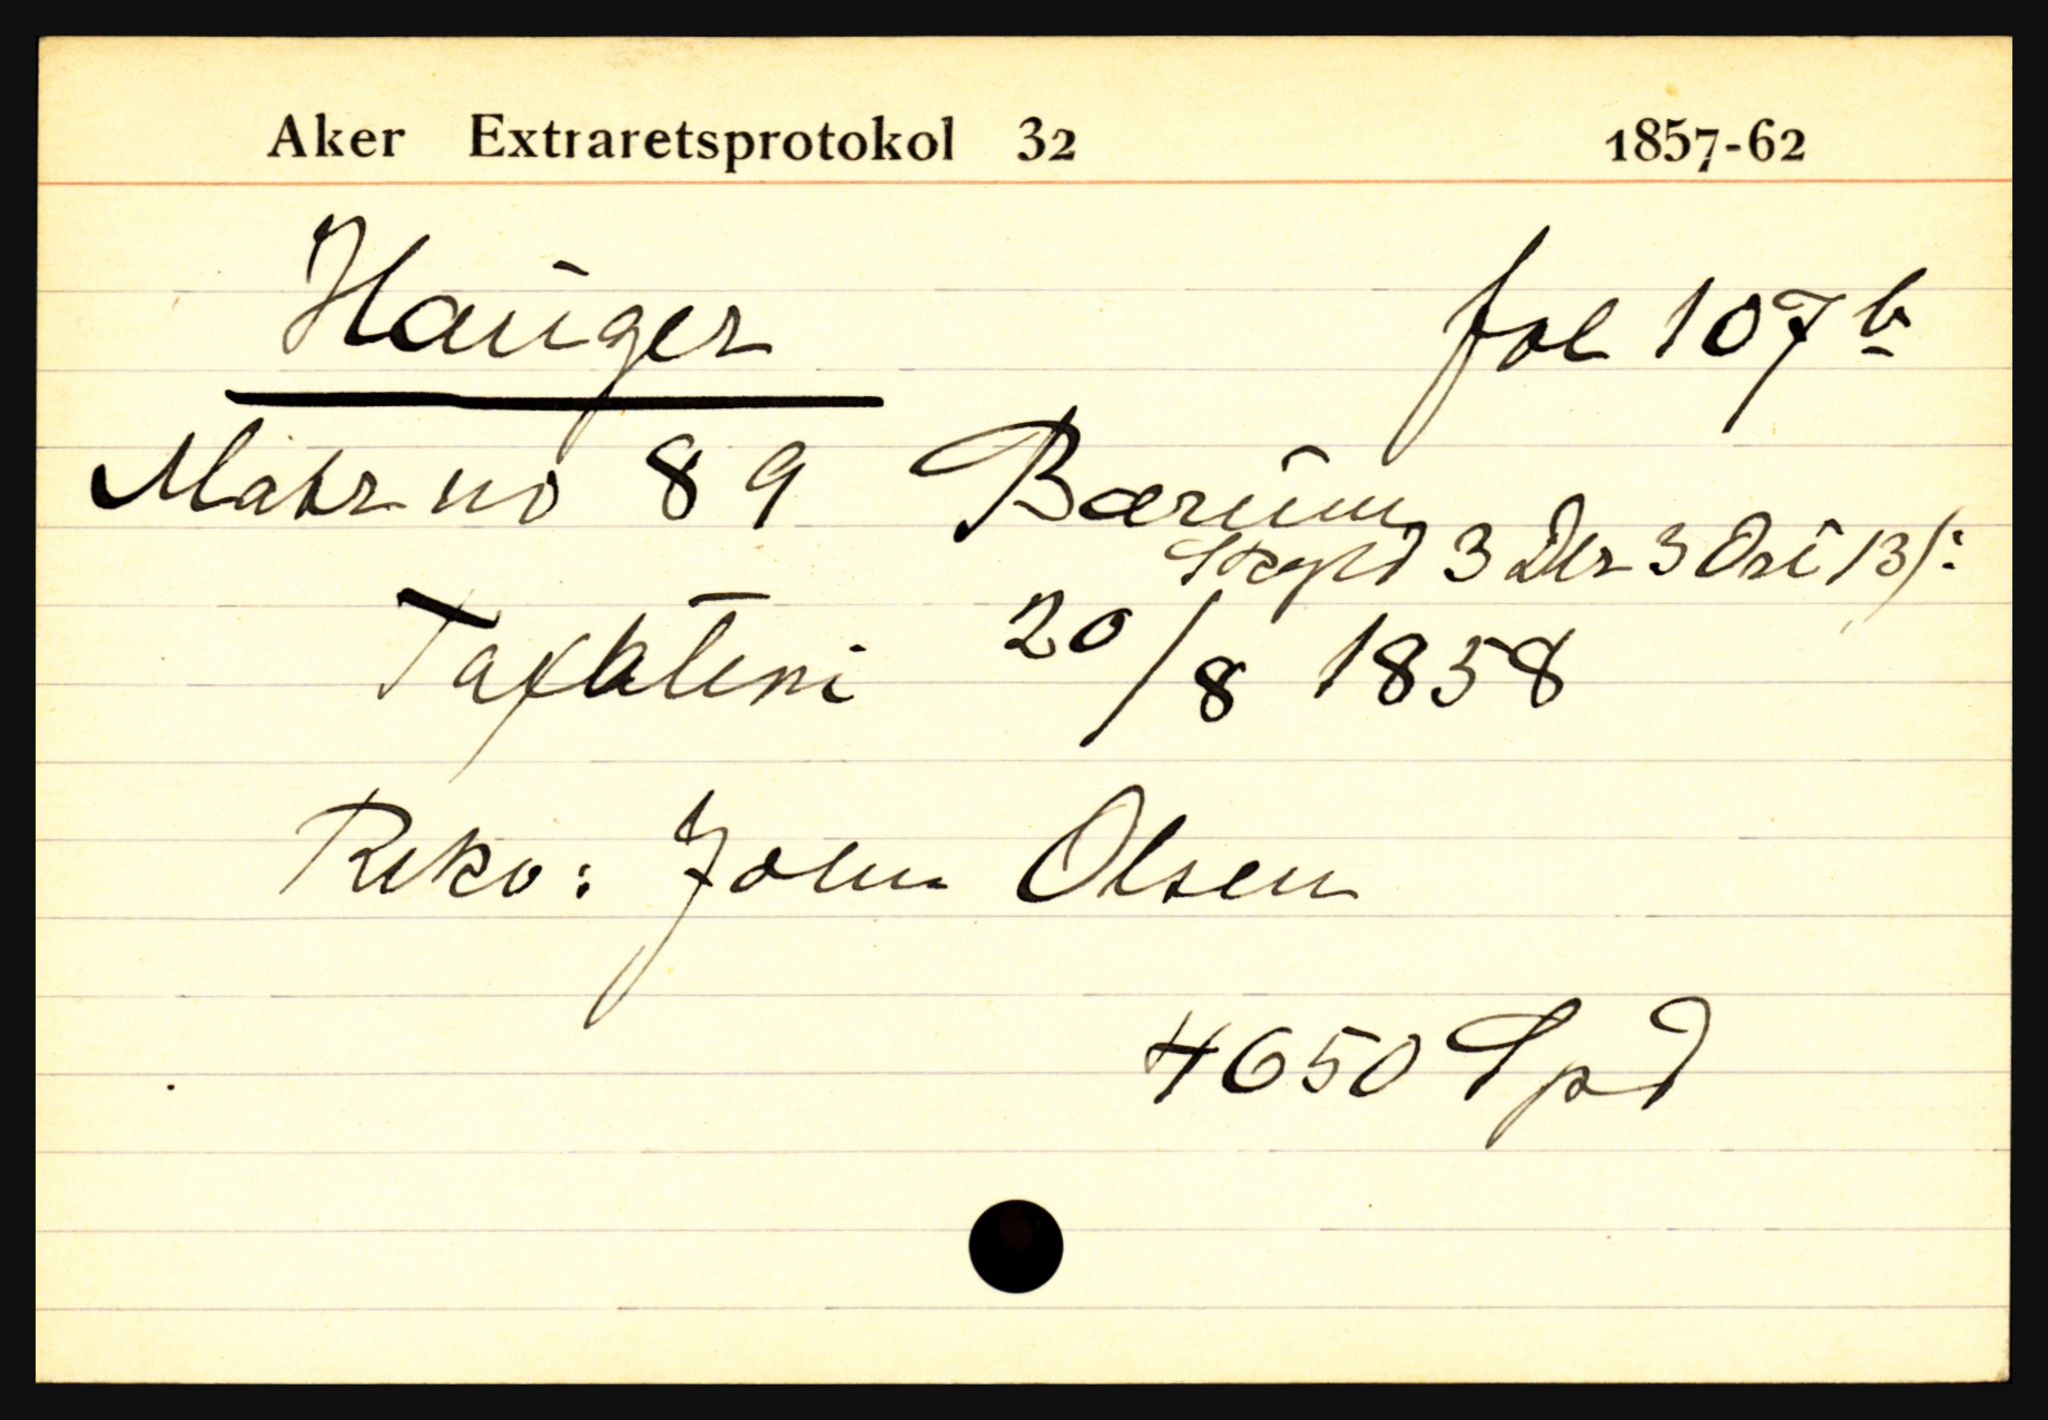 Aker Extraretsprotokol 32 1857-62
Hauger fol 107 b
Matr no 89 Bærum
Skyld 3 Dlr 3 Ort 13 s:
Taxt 20/8 1858
Rekv: John Olsen
4650 Spd